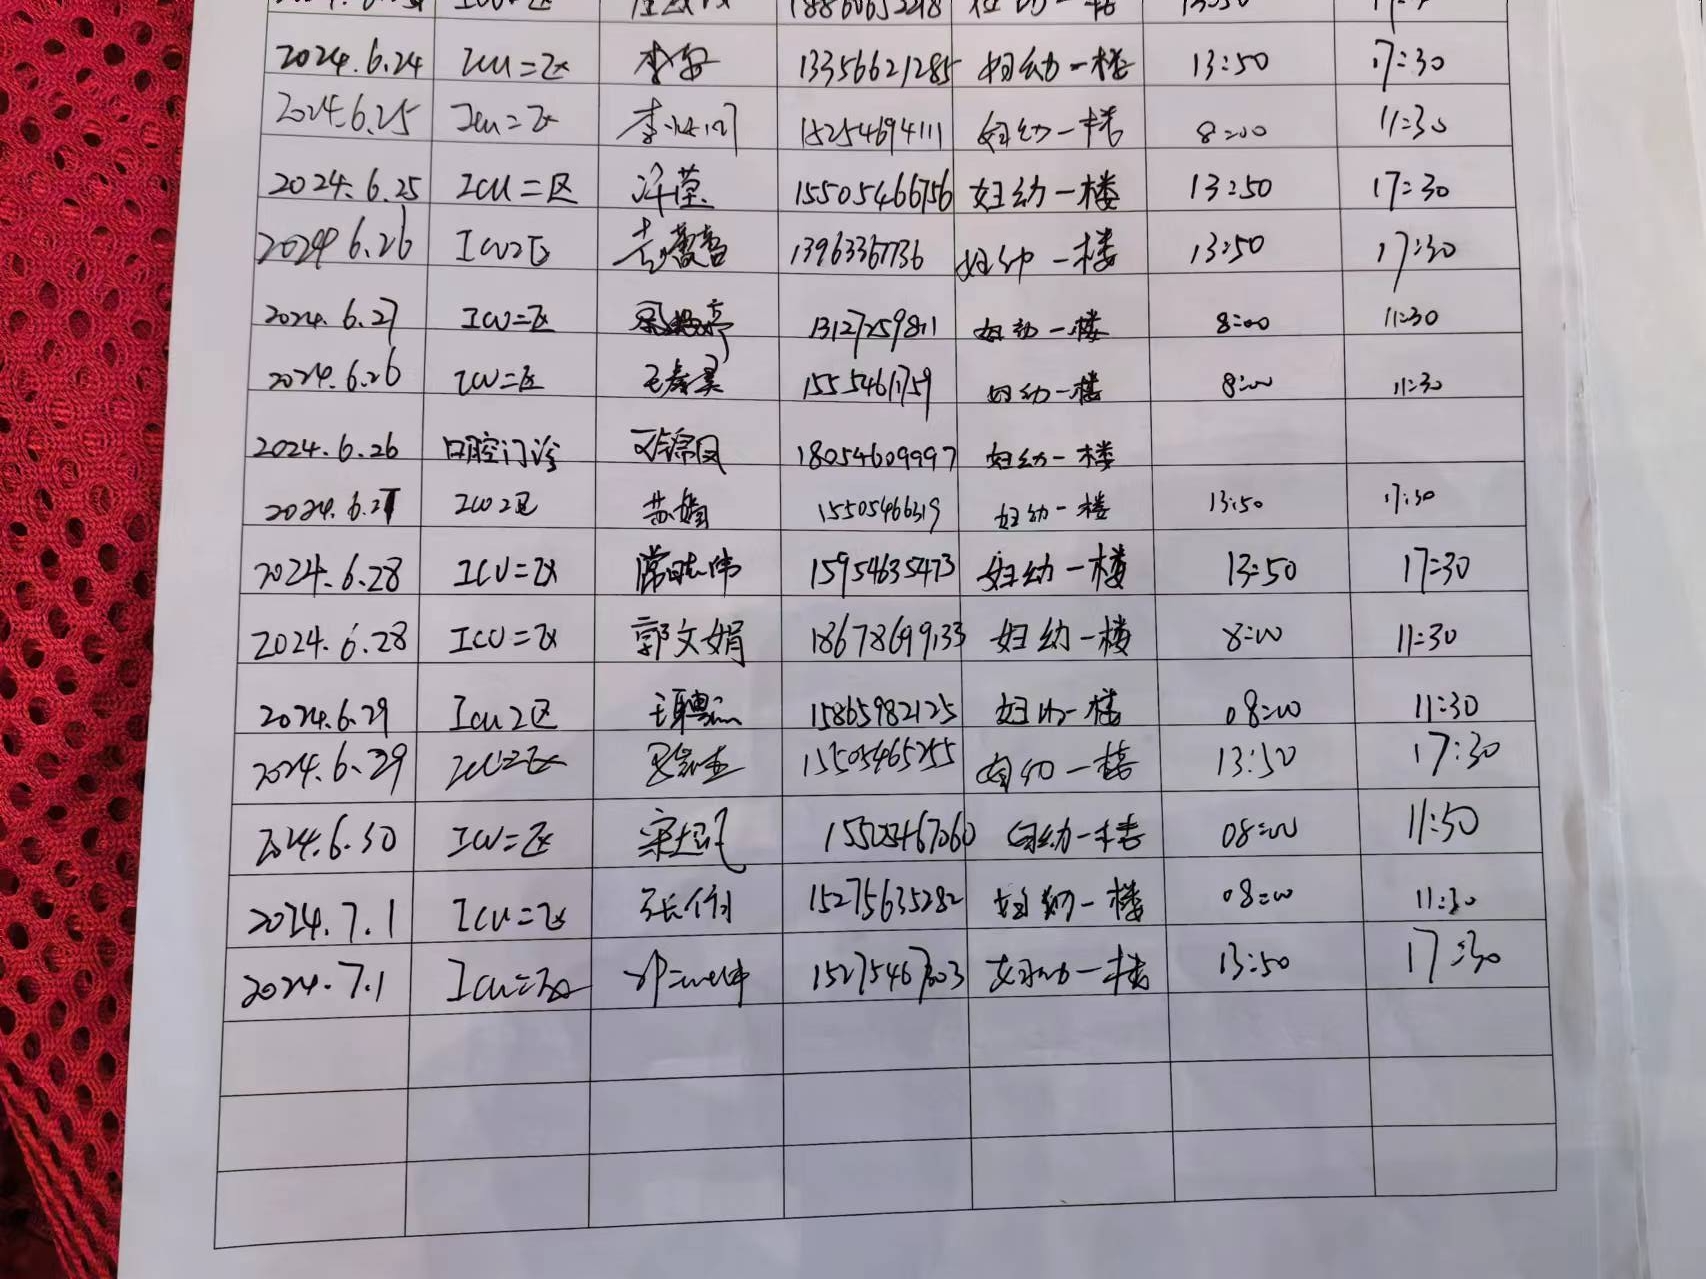 2024.6.24 ICU二区 李 13356621285 妇幼一楼 13:50 17:30
2024.6.25 ICU二区 李 15254694111 妇幼一楼 8:00 11:30
2024.6.25 ICU二区 许莹 15505466756 妇幼一楼 13:50 17:30
2024 6.26 ICU2区 13963367736 妇幼一楼 13:50 17:30
2024.6.27 ICU二区 13127259811 妇幼一楼 8:00 11:30
2024.6.26 ICU二区 15554611759 妇幼一楼 8:00 11:30
2024.6.26 口腔门诊 18054609997 妇幼一楼
2024.6.27 ICU2区 苏娟 15505466319 妇幼一楼 13:50 17:30
2024.6.28 ICU二区 15954635473 妇幼一楼 13:50 17:30
2024.6.28 ICU二区 郭文娟 18678699133 妇幼一楼 8:00 11:30
2024.6.29 ICU2区 15865982125 妇幼一楼 08:00 11:30
2024.6.29 ICU二区 15505465255 妇幼一楼 13:50 17:30
2024.6.30 ICU二区 15505467060 妇幼一楼 08:00 11:30
2024.7.1 ICU二区 15275635282 妇幼一楼 08:00 11:30
2024.7.1 ICU二区 妇幼一楼 13:50 17:30